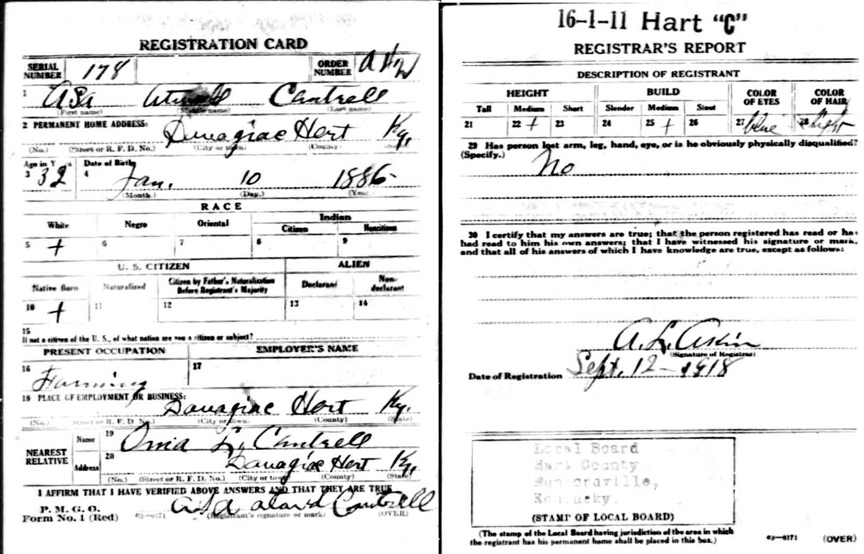 REGISTRATION CARD
SERIAL NUMBER 178 ORDER NUMBER
1 Asa Cantrell
(First name) (Middle name) (Last name)
2 PERMANENT HOME ADDRESS: Danagiac Hert Ky.
(No.) (Street or R. F. D. No.) (City or town) (County) (State)
Age in Years Date of Birth
3 32 4 Jan. 10 1886
(Month.) (Day.) (Year.)
RACE
White Negro Oriental Indian
Citizen Noncitizen
5 + 6 7 8 9
U. S. CITIZEN ALIEN
Native Born Naturalized Citizen by Father's Naturalization Before Registrant's Majority Declarant Non-declarant
10 + 11 12 13 14
15
If not a citizen of the U. S., of what nation are you a citizen or subject?
PRESENT OCCUPATION EMPLOYER'S NAME
16 Farming 17
18 PLACE OF EMPLOYMENT OR BUSINESS:
Danagiac Hert Ky.
(No.) (Street or R. F. D. No.) (City or town) (County) (State)
NEAREST RELATIVE Name 19 L. Cantrell
Address 20 Danagiac Hert Ky.
(No.) (Street or R. F. D. No.) (City or town) (County) (State)
I AFFIRM THAT I HAVE VERIFIED ABOVE ANSWERS AND THAT THEY ARE TRUE
P. M. G. O.
Form No. 1 (Red) Cantrell
(Registrant's signature or mark) (OVER)
16-1-11 Hart "C"
REGISTRAR'S REPORT
DESCRIPTION OF REGISTRANT
HEIGHT BUILD COLOR OF EYES COLOR OF HAIR
Tall Medium Short Slender Medium Stout
21 22 + 23 24 25 + 26 27 blue 28 light
29 Has person lost arm, leg, hand, eye, or is he obviously physically disqualified?
(Specify.) No
30 I certify that my answers are true; that the person registered has read or has
had read to him his own answers; that I have witnessed his signature or mark,
and that all of his answers of which I have knowledge are true, except as follows:
A. L. Askin
(Signature of Registrar)
Date of Registration Sept. 12 - 1918
Local Board
Hart County
Munfordville,
Kentucky.
(STAMP OF LOCAL BOARD)
(The stamp of the Local Board having jurisdiction of the area in which
the registrant has his permanent home shall be placed in this box.)
03-6171 (OVER)